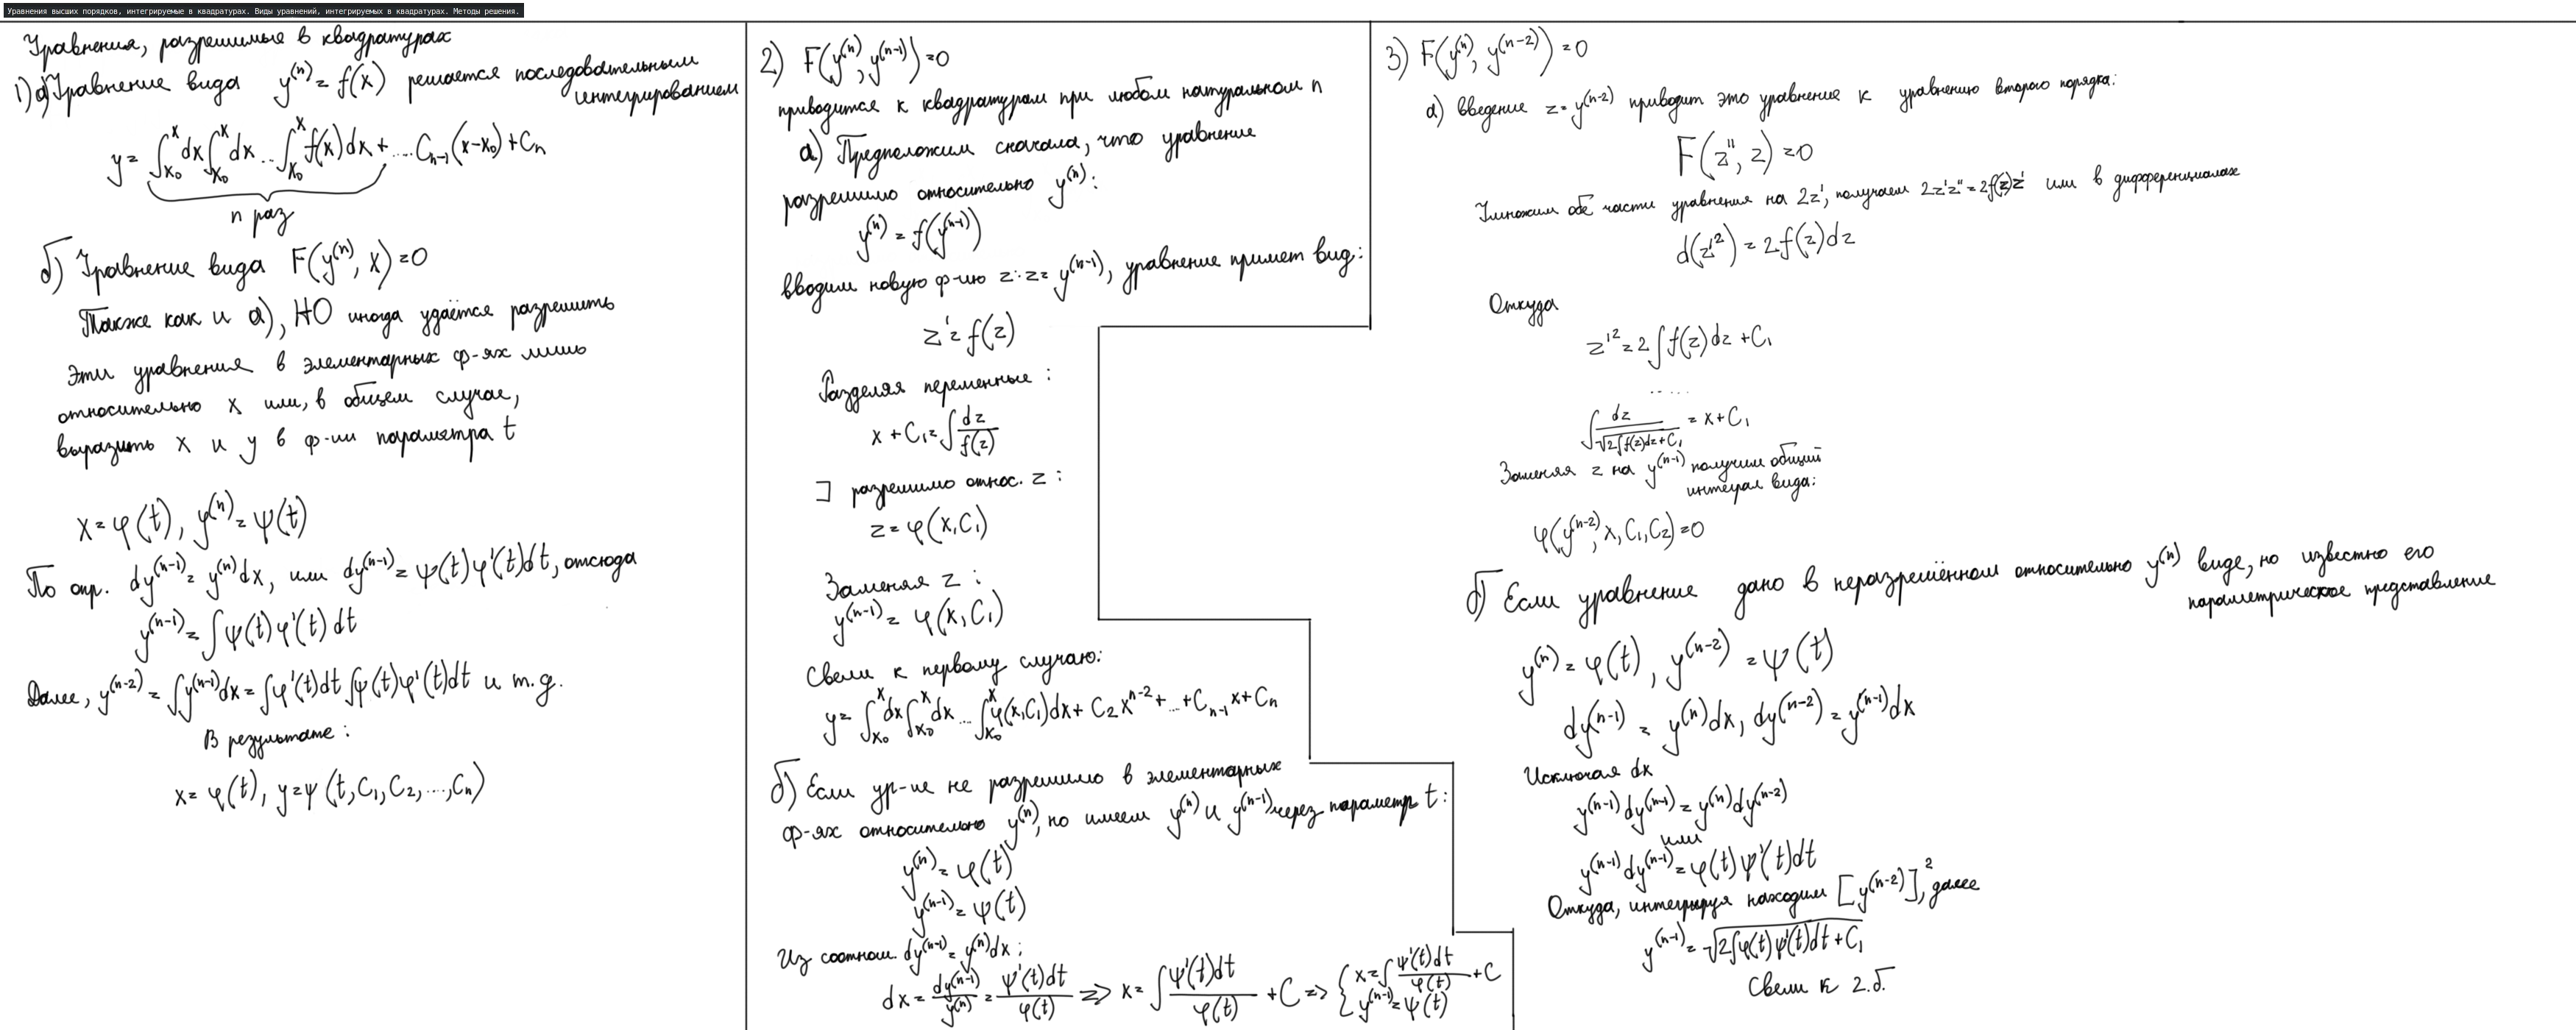 Уравнения высших порядков, интегрируемые в квадратурах. Виды уравнений, интегрируемых в квадратурах. Методы решения.
Уравнения, разрешимые в квадратурах
1) а) Уравнение вида y^(n) = f(x) решается последовательным
интегрированием
y = ∫_{x₀}^{x} dx ∫_{x₀}^{x} dx ... ∫_{x₀}^{x} f(x)dx + .... C_{n-1}(x-x₀) + C_n
n раз
б) Уравнение вида F(y^(n), x) = 0
Также как и а), НО иногда удаётся разрешить
Эти уравнения в элементарных ф-ях лишь
относительно x или, в общем случае,
выразить x и y в ф-ии параметра t
x = φ(t), y^(n) = ψ(t)
По опр. dy^(n-1) = y^(n)dx, или dy^(n-1) = ψ(t)φ'(t)dt, отсюда
y^(n-1) = ∫ψ(t)φ'(t)dt
Далее, y^(n-2) = ∫y^(n-1)dx = ∫φ'(t)dt ∫ψ(t)φ'(t)dt и т.д.
В результате:
x = φ(t), y = ψ(t, C₁, C₂, ..., C_n)
2) F(y^(n), y^(n-1)) = 0
приводится к квадратурам при любом натуральном n
а) Предположим сначала, что уравнение
разрешимо относительно y^(n):
y^(n) = f(y^(n-1))
вводим новую ф-ию z: z = y^(n-1), уравнение примет вид:
z' = f(z)
Разделяя переменные:
x + C₁ = ∫ dz / f(z)
] разрешимо относ. z:
z = φ(x, C₁)
Заменяя z:
y^(n-1) = φ(x, C₁)
Свели к первому случаю:
y = ∫_{x₀}^{x} dx ∫_{x₀}^{x} dx ... ∫_{x₀}^{x} φ(x, C₁)dx + C₂x^{n-2} + ... + C_{n-1}x + C_n
б) Если ур-ие не разрешимо в элементарных
ф-ях относительно y^(n), но имеем y^(n) и y^(n-1) через параметр t:
y^(n) = φ(t)
y^(n-1) = ψ(t)
Из соотнош. dy^(n-1) = y^(n)dx:
dx = dy^(n-1) / y^(n) = ψ'(t)dt / φ(t) => x = ∫ ψ'(t)dt / φ(t) + C => { x = ∫ ψ'(t)dt / φ(t) + C
y^(n-1) = ψ(t)
3) F(y^(n), y^(n-2)) = 0
а) введение z = y^(n-2) приводит это уравнение к уравнению второго порядка:
F(z'', z) = 0
Умножим обе части уравнения на 2z', получаем 2z'z'' = 2f(z)z' или в дифференциалах
d(z'²) = 2f(z)dz
Откуда
z'² = 2∫f(z)dz + C₁
.....
∫ dz / √(2∫f(z)dz + C₁) = x + C₁
Заменяя z на y^(n-1) получим общий
интеграл вида:
φ(y^(n-2), x, C₁, C₂) = 0
б) Если уравнение дано в неразрешённом относительно y^(n) виде, но известно его
параметрическое представление
y^(n) = φ(t), y^(n-2) = ψ(t)
dy^(n-1) = y^(n)dx, dy^(n-2) = y^(n-1)dx
Исключая dx
y^(n-1)dy^(n-1) = y^(n)dy^(n-2)
или
y^(n-1)dy^(n-1) = φ(t)ψ'(t)dt
Откуда, интегрируя находим [y^(n-2)]², далее
y^(n-1) = √(2∫φ(t)ψ'(t)dt + C₁)
Свели к 2.б.